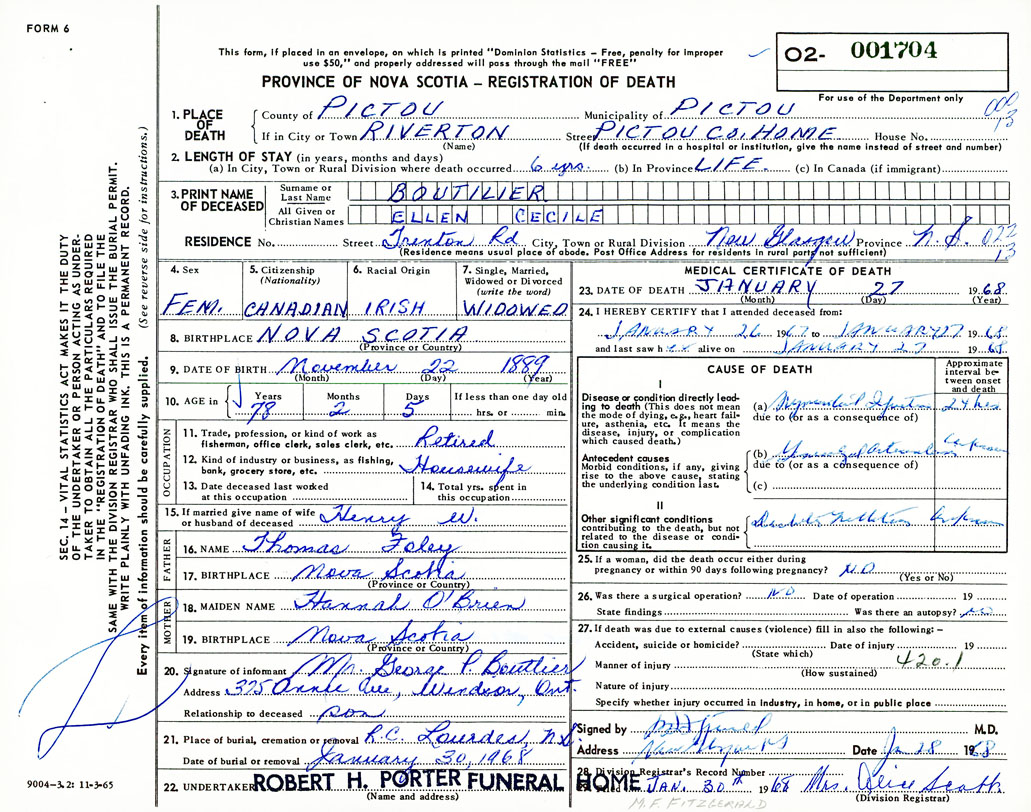 FORM 6
This form, if placed in an envelope, on which is printed "Dominion Statistics – Free, penalty for improper
use $50," and properly addressed will pass through the mail "FREE"
O2- 001704
PROVINCE OF NOVA SCOTIA – REGISTRATION OF DEATH
For use of the Department only
1. PLACE OF DEATH County of PICTOU Municipality of PICTOU
If in City or Town RIVERTON Street PICTOU CO. HOME House No.
(Name) (If death occurred in a hospital or institution, give the name instead of street and number)
2. LENGTH OF STAY (in years, months and days)
(a) In City, Town or Rural Division where death occurred 6 yrs. (b) In Province LIFE. (c) In Canada (if immigrant)
3. PRINT NAME OF DECEASED Surname or Last Name BOUTILIER
All Given or Christian Names ELLEN CECILE
RESIDENCE No. Street Trenton Rd City, Town or Rural Division New Glasgow Province N.S. 022 13
(Residence means usual place of abode. Post Office Address for residents in rural parts not sufficient)
4. Sex FEM.
5. Citizenship (Nationality) CANADIAN
6. Racial Origin IRISH
7. Single, Married, Widowed or Divorced (write the word) WIDOWED
8. BIRTHPLACE NOVA SCOTIA
(Province or Country)
9. DATE OF BIRTH November 22 1889
(Month) (Day) (Year)
10. AGE in Years Months Days If less than one day old
78 2 5 hrs. or min.
OCCUPATION
11. Trade, profession, or kind of work as fisherman, office clerk, sales clerk, etc. Retired
12. Kind of industry or business, as fishing, bank, grocery store, etc. Housewife
13. Date deceased last worked at this occupation
14. Total yrs. spent in this occupation
15. If married give name of wife or husband of deceased Henry W.
FATHER
16. NAME Thomas Foley
17. BIRTHPLACE Nova Scotia
(Province or Country)
MOTHER
18. MAIDEN NAME Hannah O'Brien
19. BIRTHPLACE Nova Scotia
(Province or Country)
20. Signature of informant Mr. George P. Boutlier
Address 375 Annie Ave, Windsor, Ont.
Relationship to deceased son
21. Place of burial, cremation or removal R.C. Lourdes, N.S.
Date of burial or removal January 30, 1968
22. UNDERTAKER ROBERT H. PORTER FUNERAL HOME
(Name and address)
MEDICAL CERTIFICATE OF DEATH
23. DATE OF DEATH JANUARY 27 1968
(Month) (Day) (Year)
24. I HEREBY CERTIFY that I attended deceased from:
JANUARY 26 1967 to JANUARY 27 1968
and last saw her alive on JANUARY 27 1968
CAUSE OF DEATH
Approximate interval between onset and death
I
Disease or condition directly leading to death (This does not mean the mode of dying, e.g., heart failure, asthenia, etc. It means the disease, injury, or complication which caused death.)
(a) 24 hrs
due to (or as a consequence of)
Antecedent causes
Morbid conditions, if any, giving rise to the above cause, stating the underlying condition last.
(b)
due to (or as a consequence of)
(c)
II
Other significant conditions contributing to the death, but not related to the disease or condition causing it.
25. If a woman, did the death occur either during pregnancy or within 90 days following pregnancy? NO
(Yes or No)
26. Was there a surgical operation? NO Date of operation 19
State findings Was there an autopsy? NO
27. If death was due to external causes (violence) fill in also the following: –
Accident, suicide or homicide? Date of injury 19
(State which)
Manner of injury 420.1
(How sustained)
Nature of injury
Specify whether injury occurred in industry, in home, or in public place
Signed by M.D.
Address Date Jan 28 1968
28. Division Registrar's Record Number
JAN. 30th 1968 Mrs. Alice Scott
(Division Registrar)
M.F. FITZGERALD
SEC. 14 – VITAL STATISTICS ACT MAKES IT THE DUTY
OF THE UNDERTAKER OR PERSON ACTING AS UNDER-
TAKER TO OBTAIN ALL THE PARTICULARS REQUIRED
IN THE "REGISTRATION OF DEATH" AND TO FILE THE
SAME WITH THE DIVISION REGISTRAR WHO SHALL ISSUE THE BURIAL PERMIT.
WRITE PLAINLY WITH UNFADING INK. THIS IS A PERMANENT RECORD.
Every item of information should be carefully supplied. (See reverse side for instructions.)
9004-3.2: 11-3-65